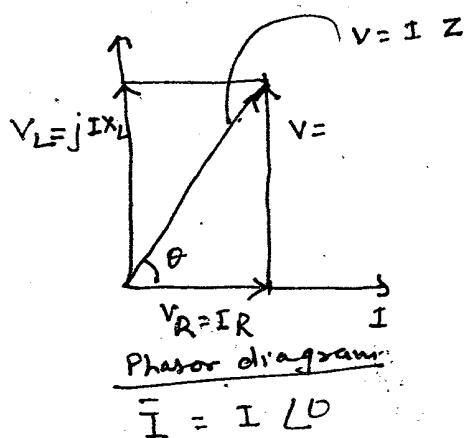 V = I Z
V_L = jIX_L
V =
θ
V_R = IR
I
Phasor diagram:
Ī = I ∠0